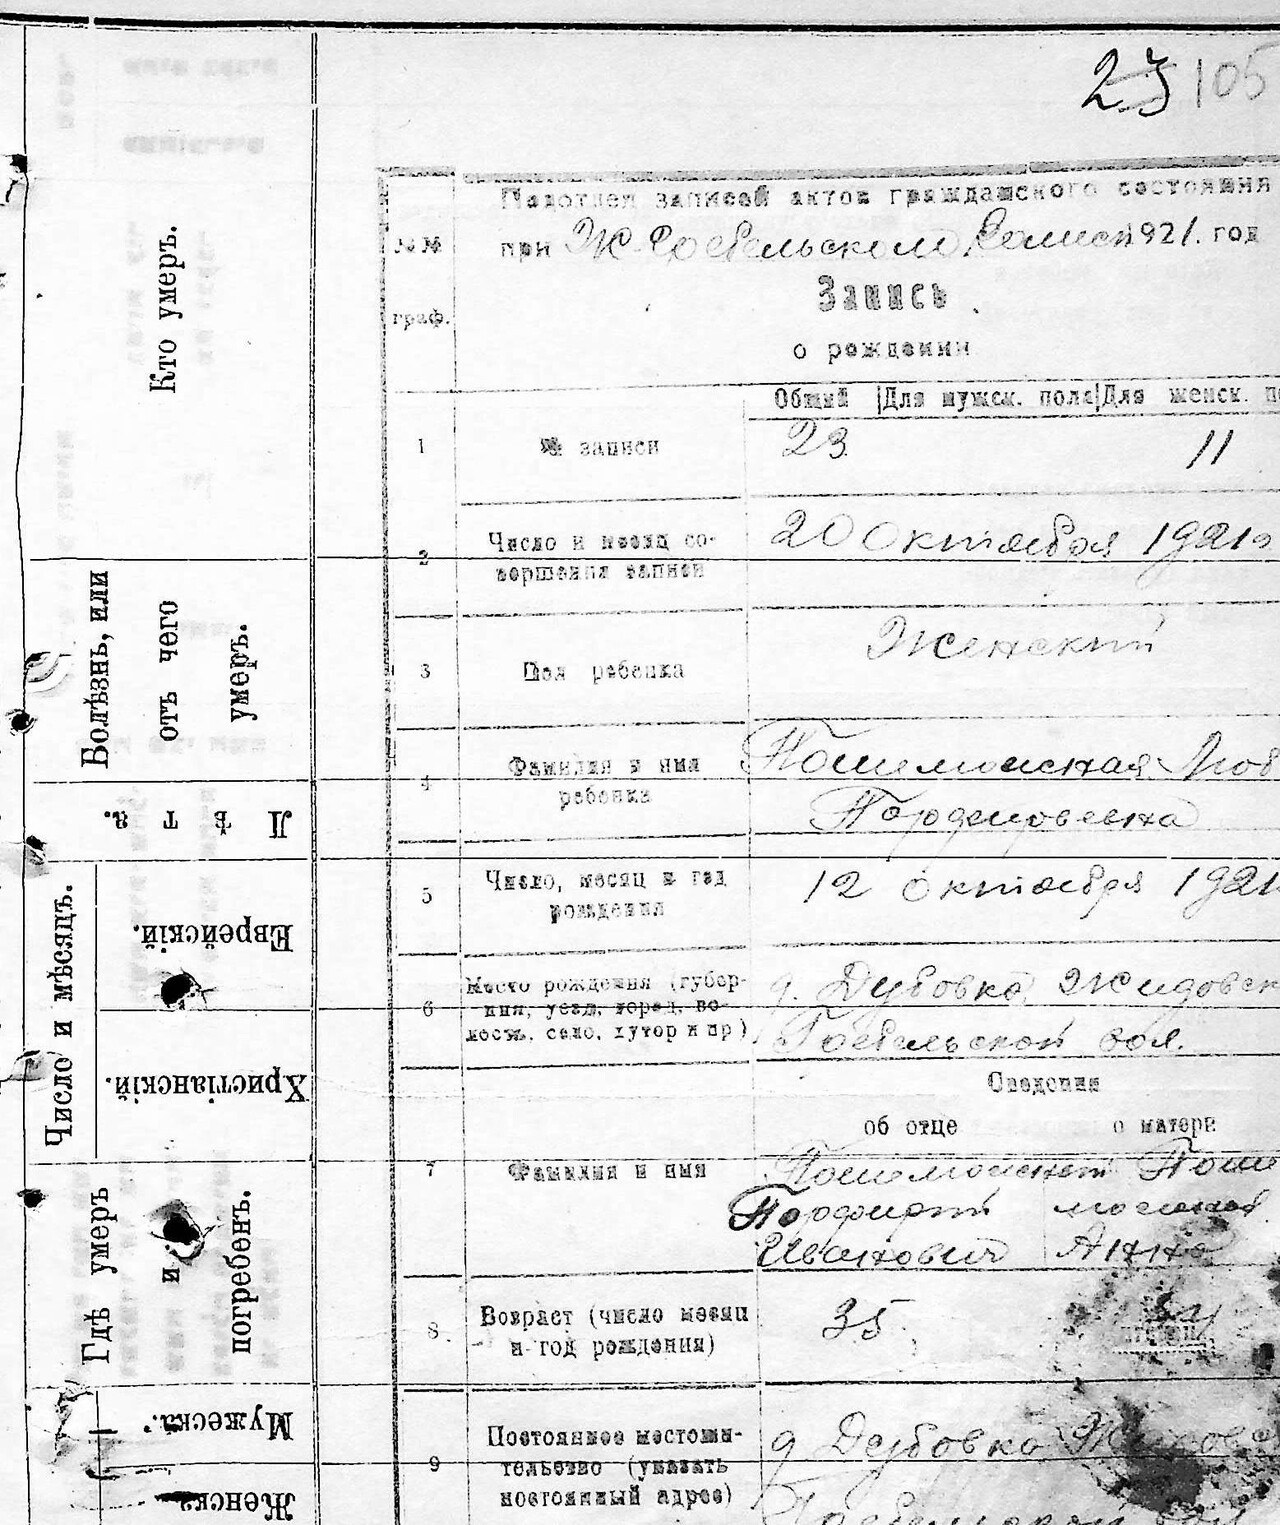 23 105
Кто умеръ.
Болѣзнь, или
отъ чего
умеръ.
Лѣта.
Число и мѣсяцъ.
Еврейскій.
Христіанскій.
Гдѣ умеръ
и
погребенъ.
Мужеска.
Женска
№№
граф.
записей актов гражданского состояния
при 1921. год
Запись
о рождении
Общий Для мужск. пола Для женск. по
1 № записи 23 11
2 Число и месяц со-
вершения записи
20 Октября 1921
3 Пол ребенка Женский
4 Фамилия и имя
ребенка
Пошемонская Люб
Порфировевна
5 Число, месяц и год
рождения
12 октября 1921
6 Место рождения (губер-
ния, уезд, город, во-
лость, село, хутор и пр)
д. Дубовка Жидовск
Гребельской вол.
Сведения
об отце о матери
7 Фамилия и имя
Пошемонский
Порфирий
Иванович
Поше
монская
Анна
8. Возраст (число месяц
и год рождения)
35
9 Постоянное местожи-
тельство (указать
постоянный адрес)
д Дубовка